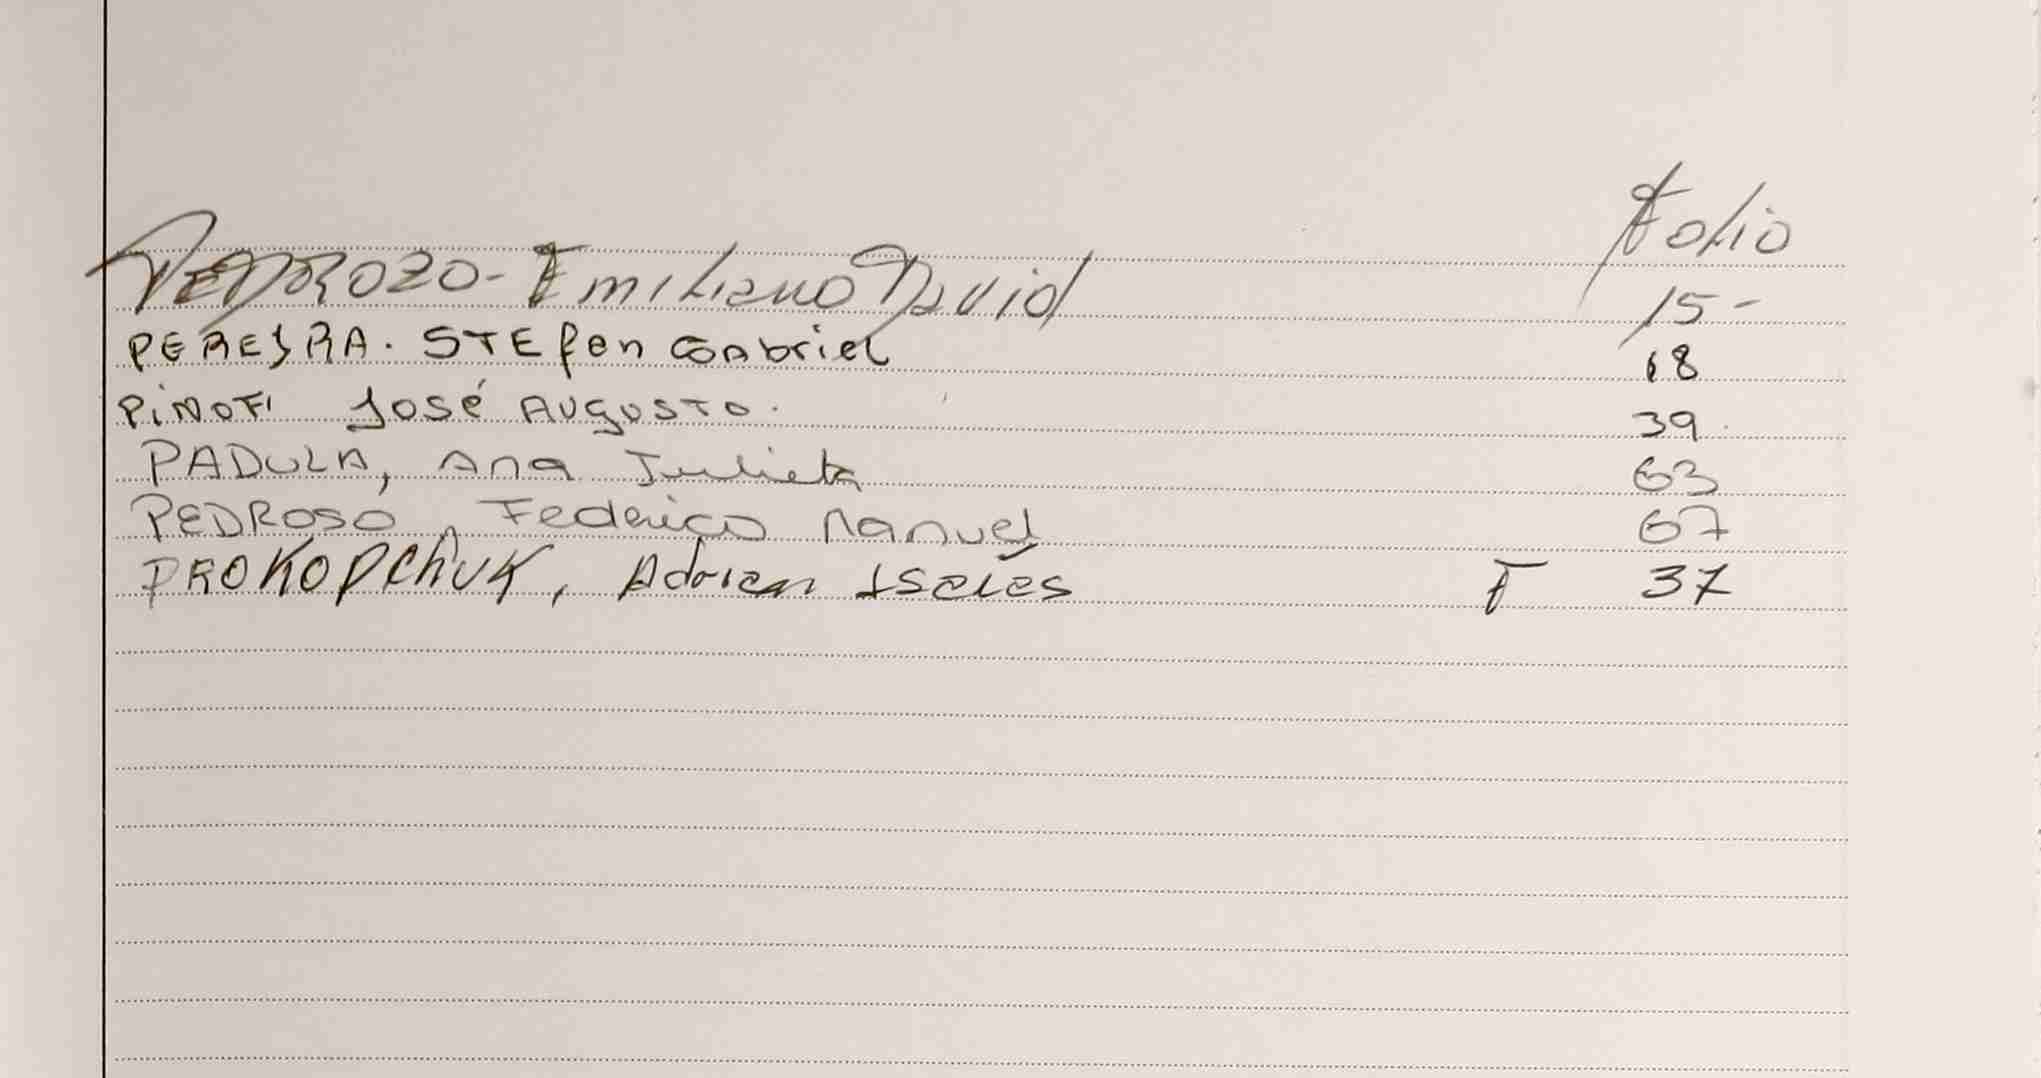 Folio
PEDROZO - Emiliano David 15 -
PEREYRA. STEfen Gabriel 18
PiNOTi José AUgUSTO. 39
PADULA, Ana Julieta 63
PEDROSO, Federico Manuel 67
PROKOPChUK, Adrian Isaías F 37